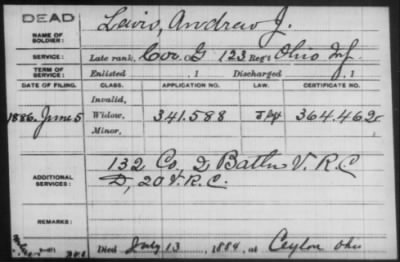 DEAD
Lewis, Andrew J.
NAME OF SOLDIER:
SERVICE: Late rank, Cov. G 123 Reg't Ohio Inf.
TERM OF SERVICE: Enlisted , 1 Discharged , 1
DATE OF FILING. CLASS. APPLICATION NO. LAW. CERTIFICATE NO.
Invalid,
1886. June 5 Widow, 341.588 364.462
Minor,
132 Co. 2 Battn V. R. C
ADDITIONAL SERVICES: D, 20 V. R. C.
REMARKS:
Died July 13, 1884, at Ceylon Ohio